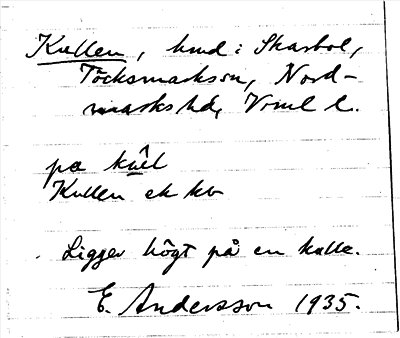 Kullen, hmd i Skarbol,
Töcksmarks sn, Nord-
marks hd, Vrml l.
pa kûel
Kullen ek kb
Ligger högt på en kulle.
E. Andersson 1935.